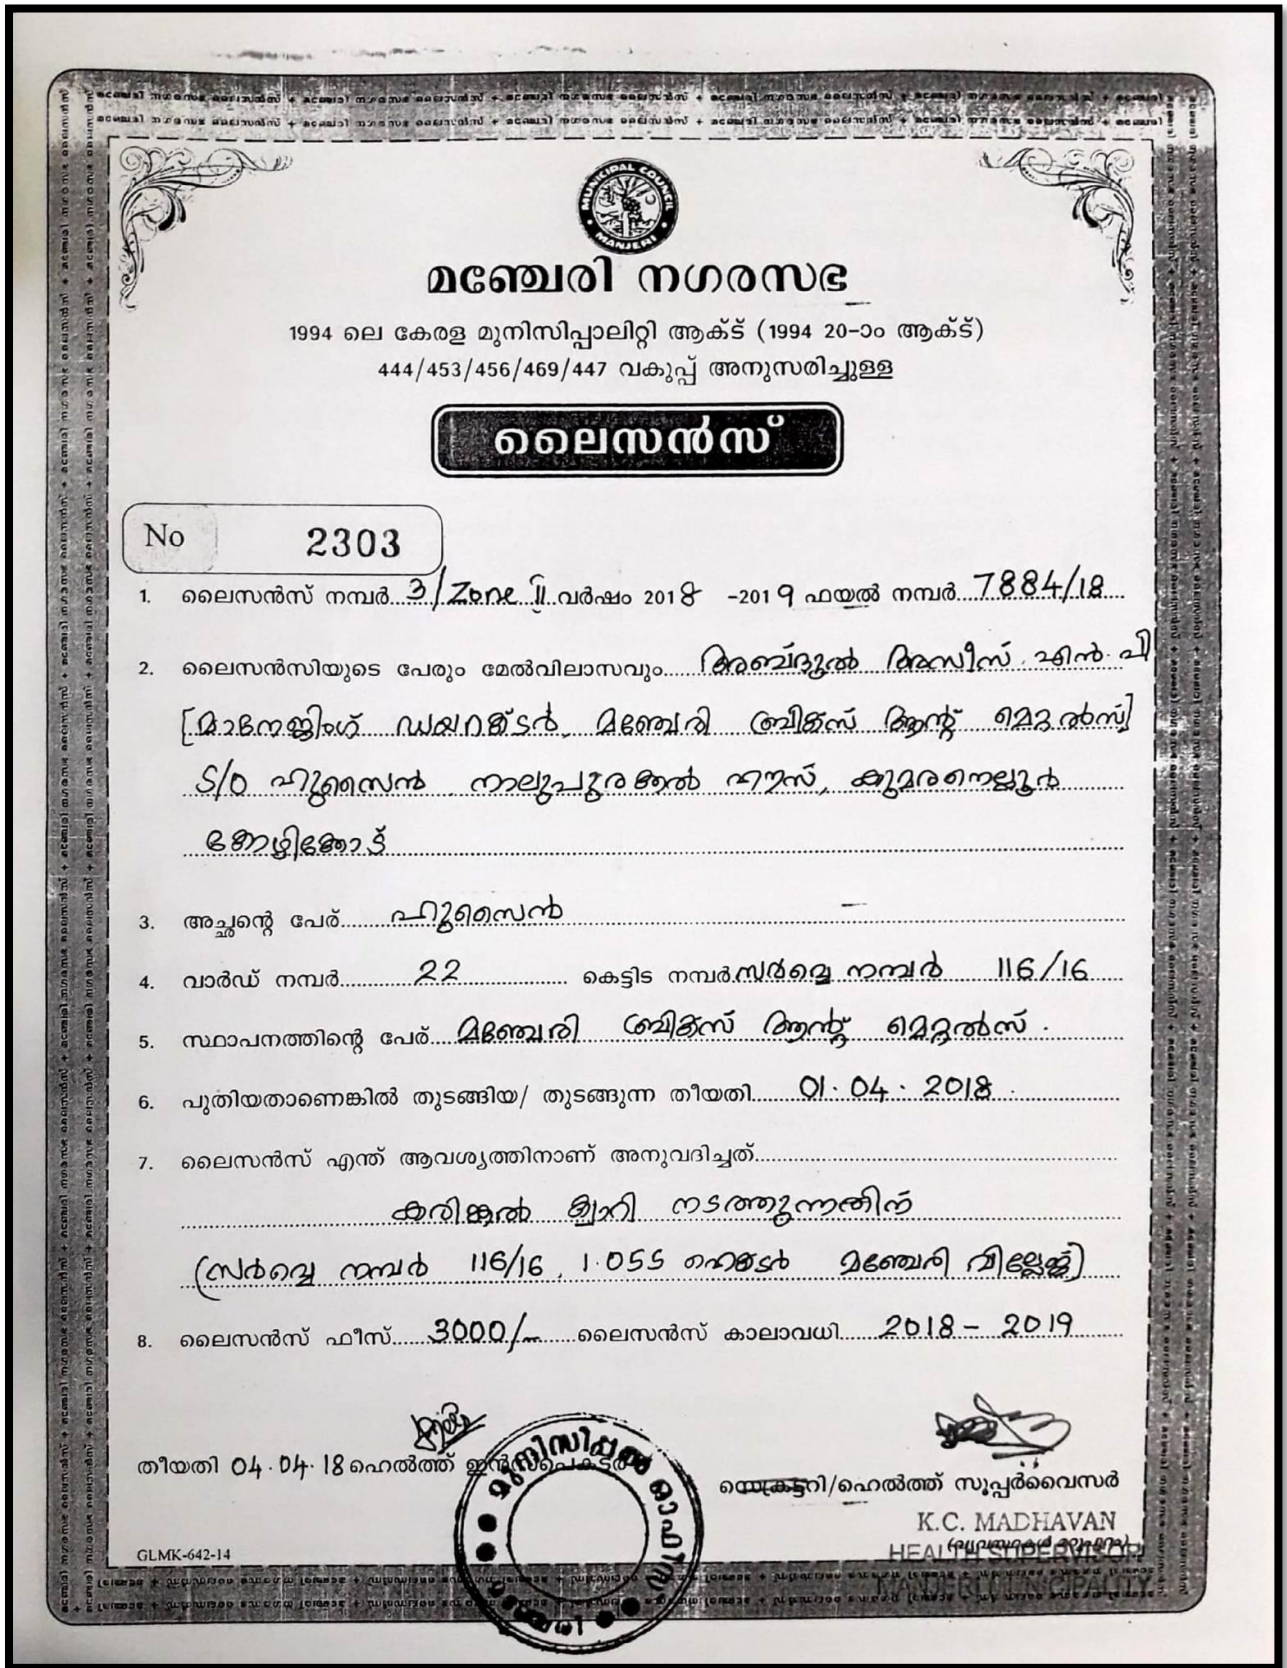 MUNICIPAL COUNCIL
MANJERI
മഞ്ചേരി നഗരസഭ
1994 ലെ കേരള മുനിസിപ്പാലിറ്റി ആക്ട് (1994 20-ാം ആക്ട്)
444/453/456/469/447 വകുപ്പ് അനുസരിച്ചുള്ള
ലൈസൻസ്
No 2303
1. ലൈസൻസ് നമ്പർ 3/Zone II വർഷം 2018 -2019 ഫയൽ നമ്പർ 7884/18
2. ലൈസൻസിയുടെ പേരും മേൽവിലാസവും അബ്ദുൽ അസീസ്. എൻ. പി
[മാനേജിംഗ് ഡയറക്ടർ, മഞ്ചേരി ബ്രിക്സ് ആന്റ് മെറ്റൽസ്]
S/O ഹുസൈൻ, നാലുപുരക്കൽ ഹൗസ്, കുമരനെല്ലൂർ
കോഴിക്കോട്
3. അച്ഛന്റെ പേര് ഹുസൈൻ
4. വാർഡ് നമ്പർ 22 കെട്ടിട നമ്പർ സർവ്വെ നമ്പർ 116/16
5. സ്ഥാപനത്തിന്റെ പേര് മഞ്ചേരി ബ്രിക്സ് ആന്റ് മെറ്റൽസ്.
6. പുതിയതാണെങ്കിൽ തുടങ്ങിയ/ തുടങ്ങുന്ന തീയതി 01.04.2018
7. ലൈസൻസ് എന്ത് ആവശ്യത്തിനാണ് അനുവദിച്ചത്
കരിങ്കൽ ക്വാറി നടത്തുന്നതിന്
(സർവ്വെ നമ്പർ 116/16, 1.055 ഹെക്ടർ മഞ്ചേരി വില്ലേജ്)
8. ലൈസൻസ് ഫീസ് 3000/- ലൈസൻസ് കാലാവധി 2018 - 2019
തീയതി 04.04.18 ഹെൽത്ത് ഇൻസ്പെക്ടർ
മുനിസിപ്പൽ ഓഫീസ്
മഞ്ചേരി
സെക്രട്ടറി/ഹെൽത്ത് സൂപ്പർവൈസർ
K.C. MADHAVAN
HEALTH SUPERVISOR
(വ്യവസ്ഥകൾ മറുപുറം)
GLMK-642-14